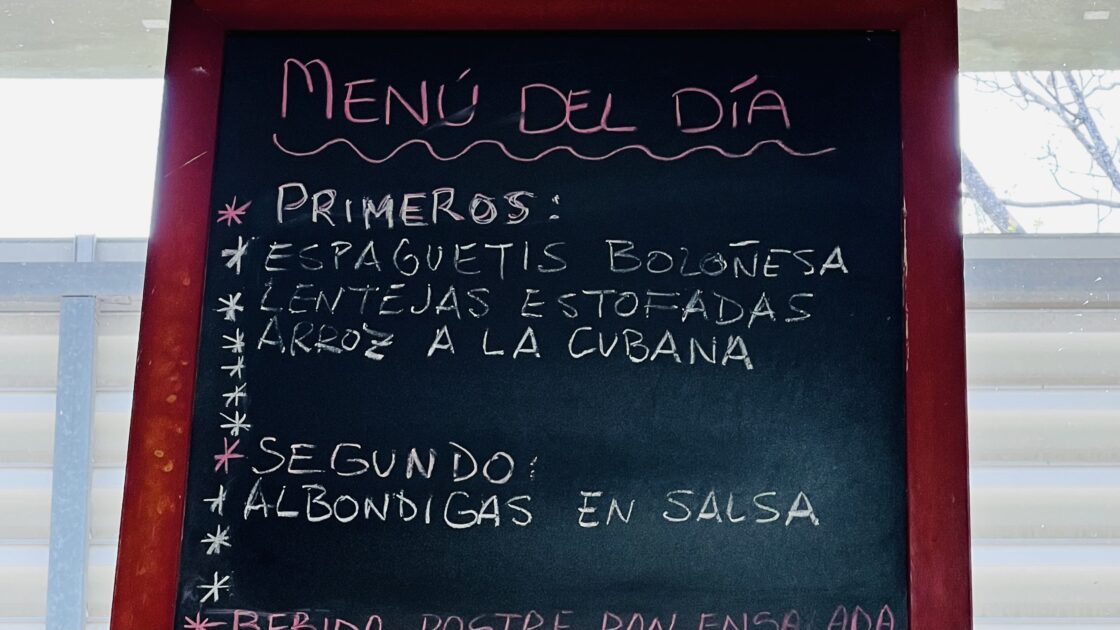 MENÚ DEL DÍA
* PRIMEROS:
* ESPAGUETIS BOLOÑESA
* LENTEJAS ESTOFADAS
* ARROZ A LA CUBANA
*
*
*
* SEGUNDO:
* ALBONDIGAS EN SALSA
*
*
* BEBIDA POSTRE PAN ENSALADA